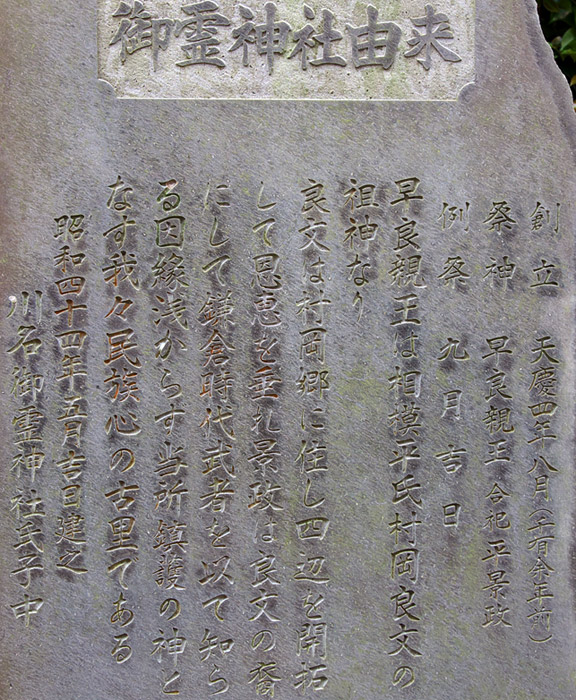 御霊神社由来
創立 天慶四年八月(千有余年前)
祭神 早良親王 合祀平景政
例祭 九月吉日
早良親王は相模平氏村岡良文の
祖神なり
良文は村岡郷に住し四辺を開拓
して恩恵を垂れ景政は良文の裔
にして鎌倉時代武者を以て知ら
る因縁浅からす当所鎮護の神と
なす我々民族心の古里てある
昭和四十四年五月吉日建之
川名御霊神社氏子中